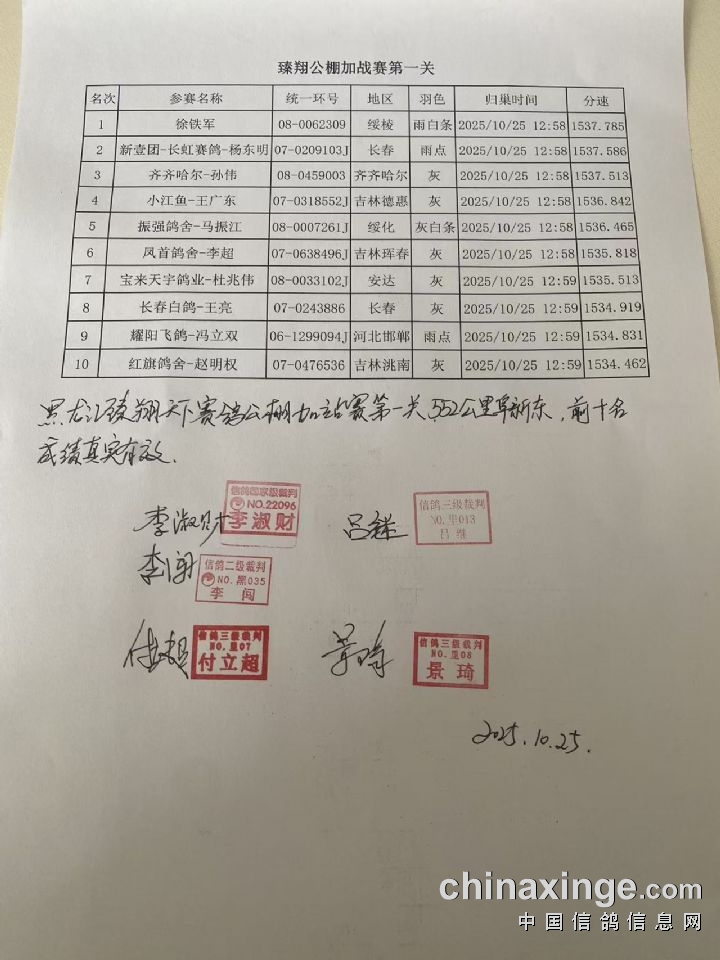 臻翔公棚加战赛第一关
名次 参赛名称 统一环号 地区 羽色 归巢时间 分速
1 徐铁军 08-0062309 绥棱 雨白条 2025/10/25 12:58 1537.785
2 新壹团-长虹赛鸽-杨东明 07-0209103J 长春 雨点 2025/10/25 12:58 1537.586
3 齐齐哈尔-孙伟 08-0459003 齐齐哈尔 灰 2025/10/25 12:58 1537.513
4 小江鱼-王广东 07-0318552J 吉林德惠 灰 2025/10/25 12:58 1536.842
5 振强鸽舍-马振江 08-0007261J 绥化 灰白条 2025/10/25 12:58 1536.465
6 凤首鸽舍-李超 07-0638496J 吉林珲春 灰 2025/10/25 12:58 1535.818
7 宝来天宇鸽业-杜兆伟 08-0033102J 安达 灰 2025/10/25 12:59 1535.513
8 长春白鸽-王亮 07-0243886 长春 灰 2025/10/25 12:59 1534.919
9 耀阳飞鸽-冯立双 06-1299094J 河北邯郸 雨点 2025/10/25 12:59 1534.831
10 红旗鸽舍-赵明权 07-0476536 吉林洮南 灰 2025/10/25 12:59 1534.462
黑龙江臻翔天下赛鸽公棚加站赛第一关552公里阜新东，前十名
成绩真实有效.
李淑财 信鸽国家级裁判 NO.22096 李淑财
信鸽三级裁判 NO.黑013
李闯 信鸽二级裁判 NO.黑035 李闯
付立超 信鸽三级裁判 NO.黑07 付立超
景琦 信鸽三级裁判 NO.黑08 景琦
2025.10.25.
chinaxinge.com
中国信鸽信息网